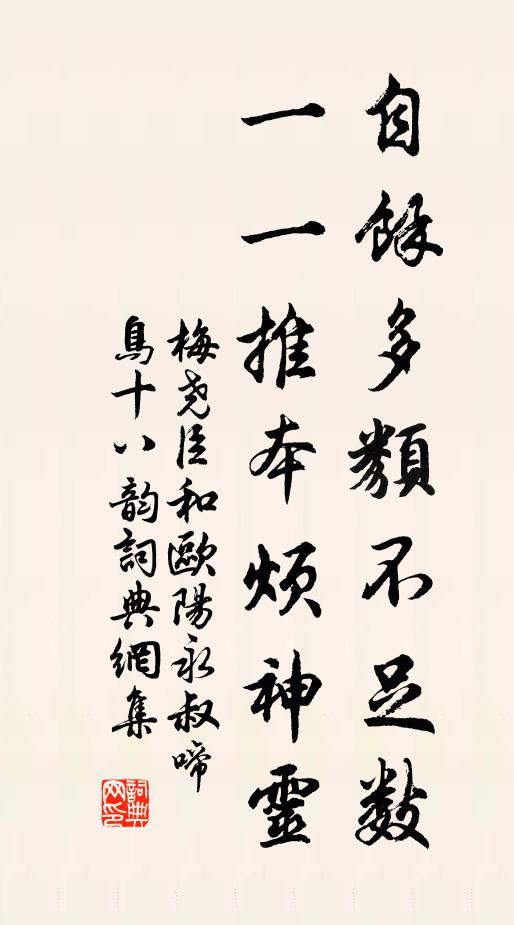 自餘多類不足数
一一推本煩神靈
梅尧臣和歐陽永叔啼
鳥十八韵詞典網集
詞典
网印